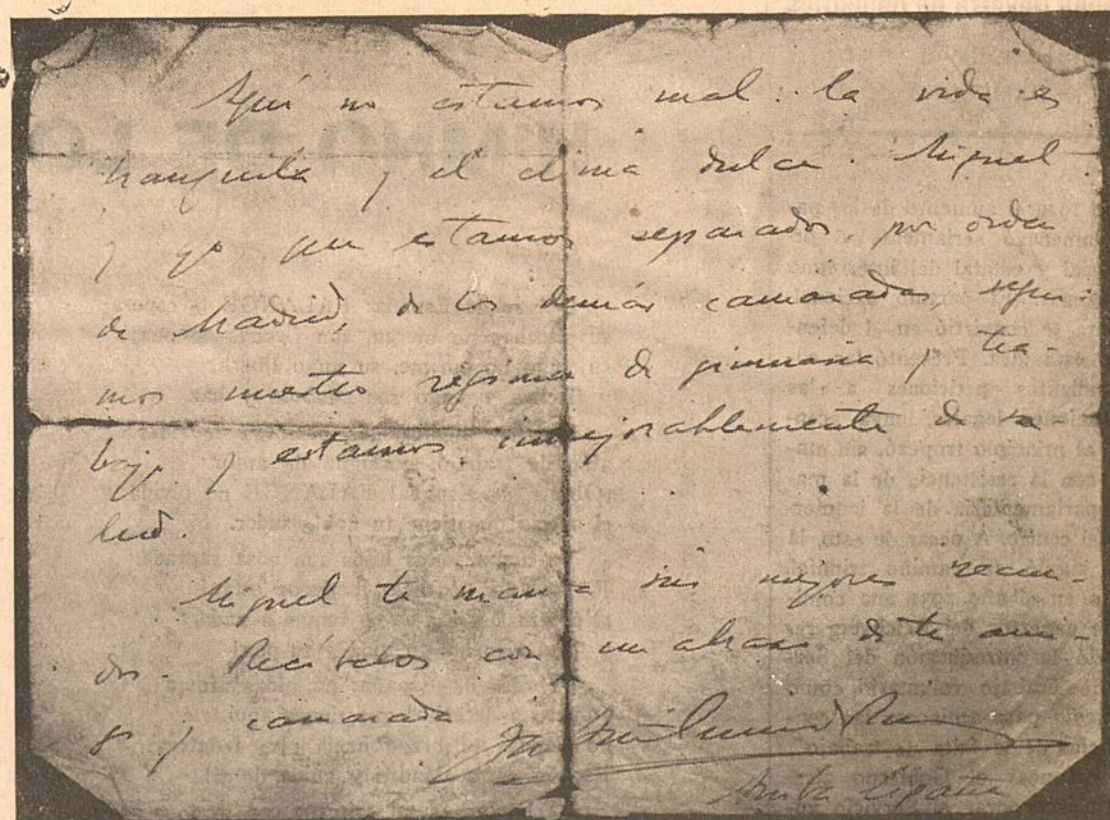 Aquí no estamos mal: la vida es
tranquila y el clima dulce. Miguel
y yo que estamos separados por orden
de Madrid, de los demás camaradas, segui-
mos nuestro régimen de gimnasia y tra-
bajo y estamos inmejorablemente de sa-
lud.
Miguel te manda sus mejores recuer-
dos. Recíbelos con un abrazo de tu ami-
go y camarada
Arriba España